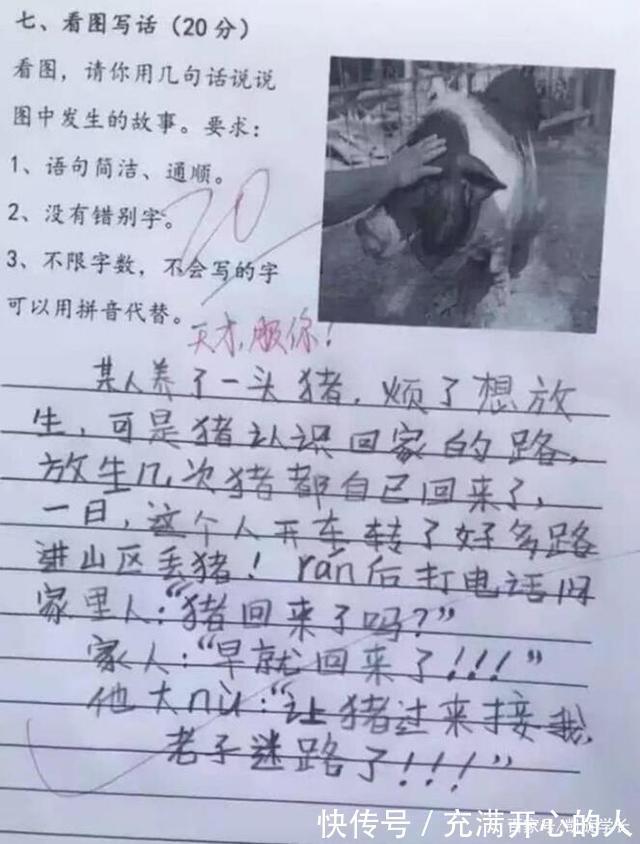 七、看图写话（20分）
看图，请你用几句话说说
图中发生的故事。要求：
1、语句简洁、通顺。
2、没有错别字。
3、不限字数，不会写的字
可以用拼音代替。
20
天才，服你！
某人养了一头猪，烦了想放
生，可是猪认识回家的路，
放生几次猪都自己回来了，
一日，这个人开车转了好多路
进山区丢猪！rán后打电话问
家里人：“猪回来了吗？”
家人：“早就回来了！！！”
他大nù：“让猪过来接我，
老子迷路了！！！”
快传号／充满开心的人